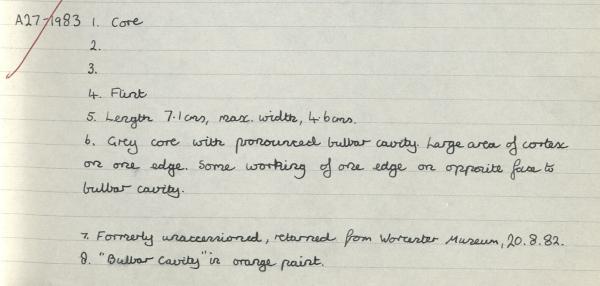 A27-1983 1. Core
2.
3.
4. Flint
5. Length 7.1cms, max. width, 4.6cms.
6. Grey core with pronounced bulbar cavity. Large area of cortex
on one edge. Some working of one edge on opposite face to
bulbar cavity.
7. Formerly unaccessioned, returned from Worcester Museum, 20.8.82.
8. "Bulbar Cavity" in orange paint.